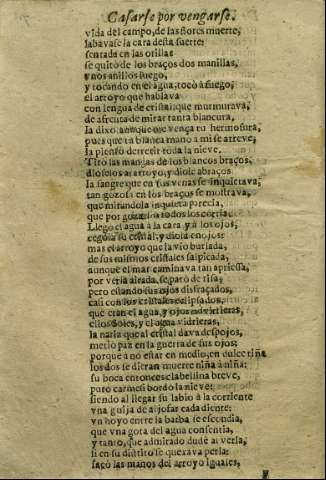 Casarse por vengarse.
vida del campo, de las flores muerte,
labavase la cara desta suerte:
sentada en las orillas
se quitò de los braços dos manillas,
y nos anillos luego,
y tocando en el agua, tocò a fuego,
el arroyo que hablava
con lengua de cristal, que murmurava,
de afrenta de mirar tanta blancura,
la dixo, aunque me vença tu hermosura,
pues que ta blanca mano a mi se atreve,
la pienso derretir toda la nieve.
Tirò las mangas de los blancos braços,
dioselos al arroyo, y diole abraços
la sangre que en sus venas se inquietava,
tan gozosa en los braços se mostrava,
que mirandola inquieta parecia,
que por gozarlos todos los corria.
Llegò el agua à la cara, y a los ojos,
cegola su cristal, y diola enojos:
mas el arroyo que la viò burlada,
de sus mismos cristales salpicada,
aunque el mar caminava tan apriessa,
por verla aleada, se parò de risa,
pero estando sus ojos disfraçados,
casi con los cristales eclipsados,
que eran el agua, y ojos vidrieras,
ellos Soles, y el agua vidrieras,
la nariz que al cristal dava despojos,
metiò paz en la guerra de sus ojos:
porque a no estar en medio, en dulce riña
los dos se dieran muerte niña à niña:
su boca entonces clabellina breve,
puro carmesi bordò la nieve:
siendo al llegar su labio à la corriente
vna guija de aljofar cada diente:
vn hoyo entre la barba se escondia,
que vna gota del agua consentia,
y tanto, que admirado dudè al verla,
si en su distrito se quexava perla:
sacò las manos del arroyo iguales,